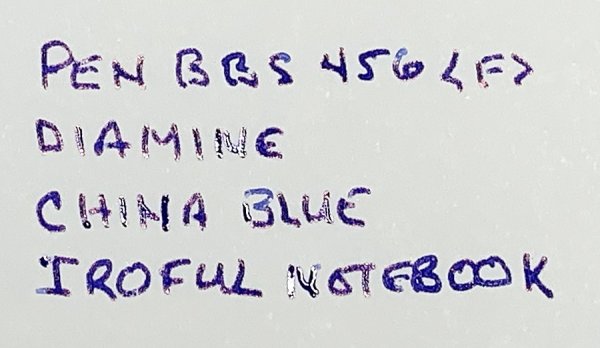 PEN BBS 456 <F>
DIAMINE
CHINA BLUE
IROFUL NOTEBOOK